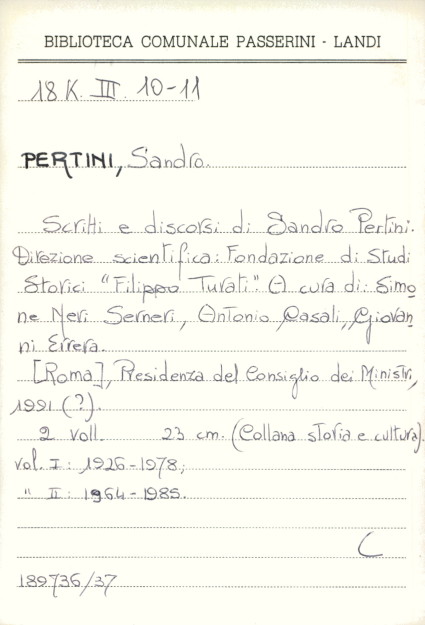 BIBLIOTECA COMUNALE PASSERINI - LANDI
18 K. III. 10-11
PERTINI, Sandro.
Scritti e discorsi di Sandro Pertini.
Direzione scientifica: Fondazione di Studi
Storici "Filippo Turati". A cura di: Simo
ne Neri Serneri, Antonio Casali, Giovan
ni Errera.
[Roma], Presidenza del Consiglio dei Ministri,
1991 (?).
2 voll. 23 cm. (Collana storia e cultura).
vol. I: 1926-1978;
" II: 1964-1985.
C
189736/37